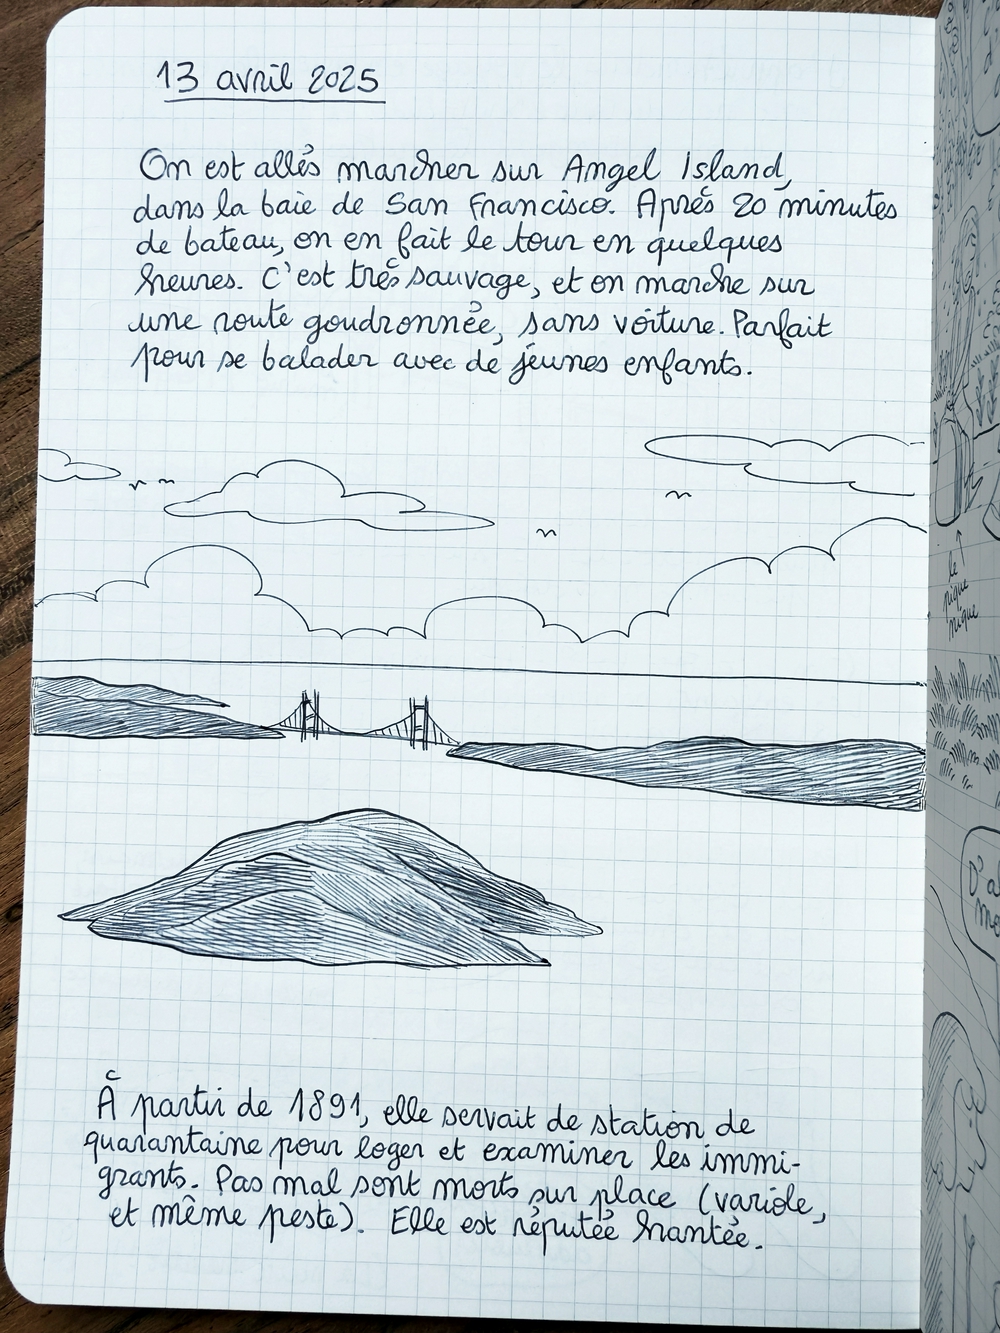 13 avril 2025
On est allés marcher sur Angel Island,
dans la baie de San Francisco. Après 20 minutes
de bateau, on en fait le tour en quelques
heures. C'est très sauvage, et on marche sur
une route goudronnée, sans voiture. Parfait
pour se balader avec de jeunes enfants.
À partir de 1891, elle servait de station de
quarantaine pour loger et examiner les immi-
grants. Pas mal sont morts sur place (variole,
et même peste). Elle est réputée hantée.
le
pique
nique